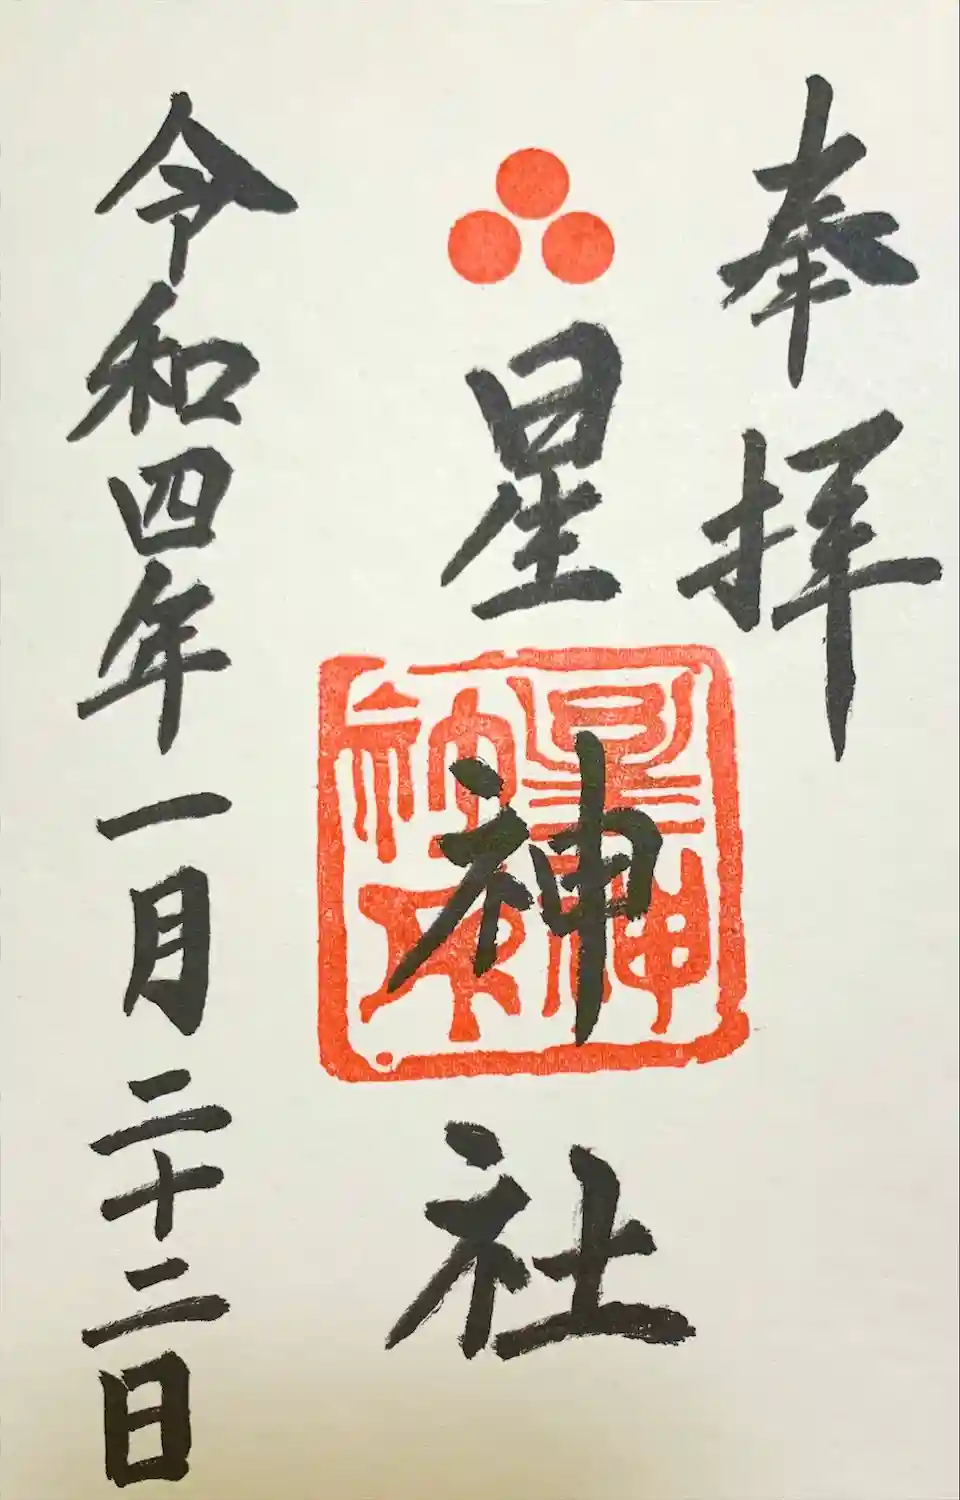 奉拝
星神社
星神社印
令和四年一月二十二日